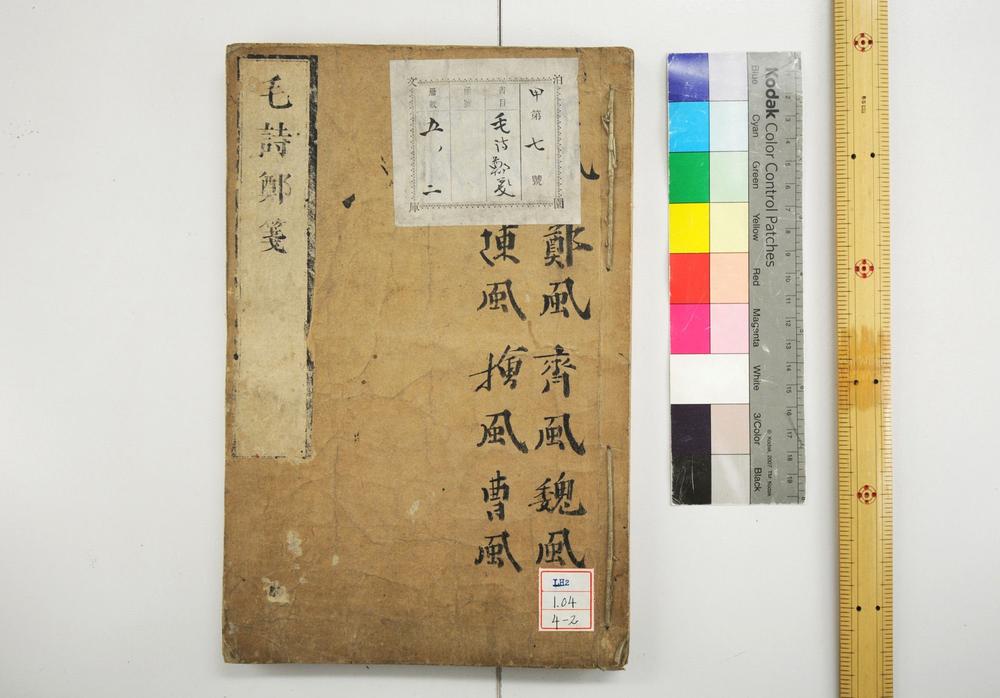 毛詩鄭箋
泊園文庫
甲第七號
書目
毛詩鄭箋
冊數
五ノ二
鄭風 齊風 魏風
陳風 檜風 曹風
LH2
1.04
4-2
Kodak Color Control Patches
Blue
Cyan
Green
Yellow
Red
Magenta
White
3/Color
Black
© Kodak, 2007 TM: Kodak
2
3
4
5
6
7
8
9
10
11
12
13
14
15
16
17
18
19